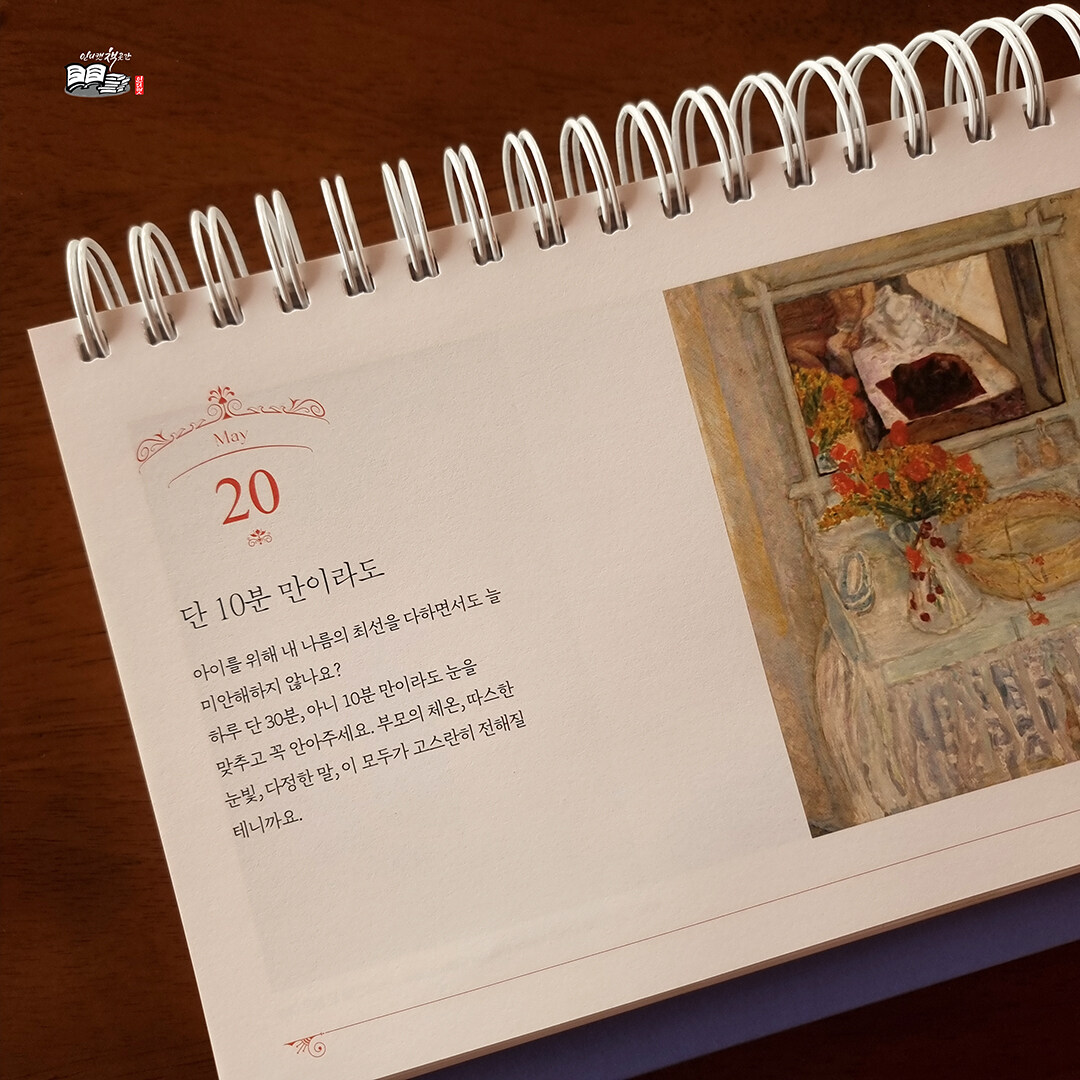 인디캣책곳간
May
20
단 10분 만이라도
아이를 위해 내 나름의 최선을 다하면서도 늘
미안해하지 않나요?
하루 단 30분, 아니 10분 만이라도 눈을
맞추고 꼭 안아주세요. 부모의 체온, 따스한
눈빛, 다정한 말, 이 모두가 고스란히 전해질
테니까요.